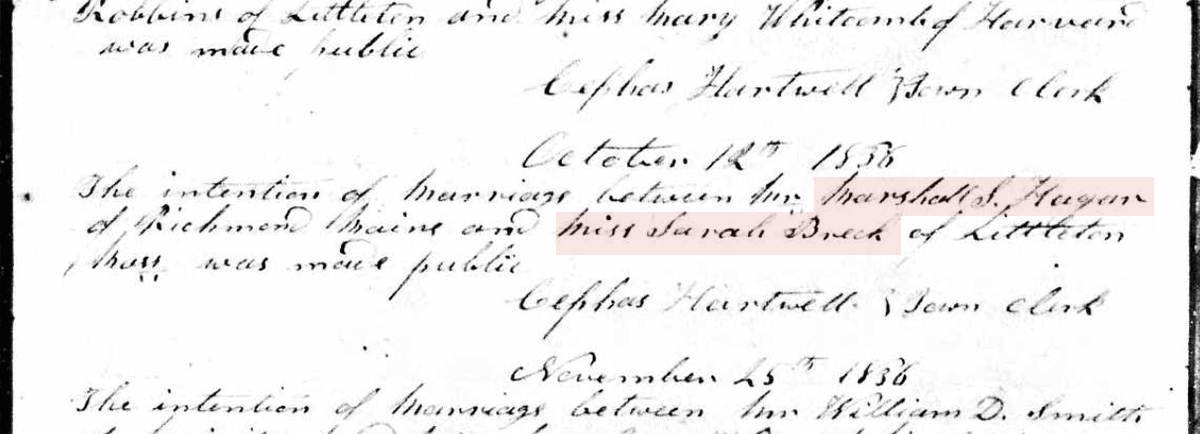 Robbins of Littleton and Miss Mary Whitcomb of Harvard
was made public
Cephas Hartwell } Town Clerk
October 12th 1836
The intention of Marriage between Mr. Marshall S. Hagar
of Richmond Maine and Miss Sarah Breck of Littleton
Mass. was made public
Cephas Hartwell } Town Clerk
November 25th 1836
The intention of Marriage between Mr William D. Smith